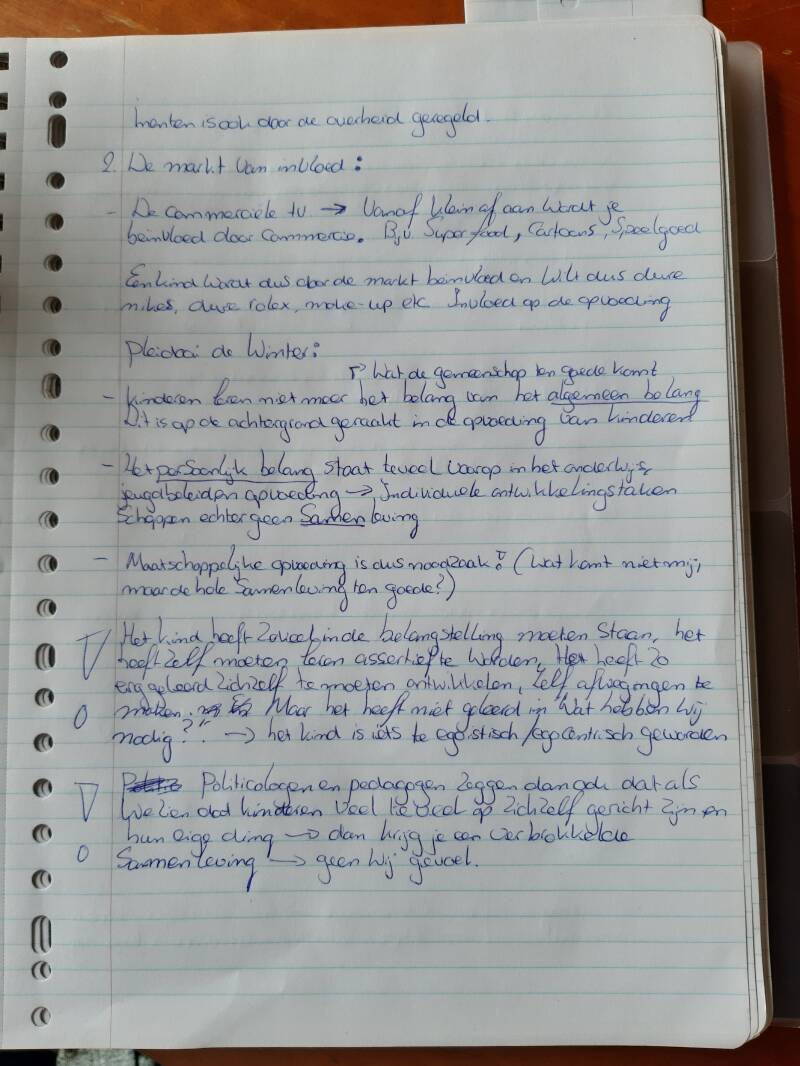 menten is ook door de overheid geregeld.
2. De markt van invloed:
- De commerciële tv → Vanaf klein af aan wordt je
beinvloed door commercie. Bijv. Superfood, Cartoons, Speelgoed
Een kind wordt dus door de markt beinvloed en wilt dus dure
nikes, dure rolex, make-up etc. Invloed op de opvoeding
Pleidooi de Winter:
↱ Wat de gemeenschap ten goede komt
- kinderen leren niet meer het belang van het algemeen belang
Dit is op de achtergrond geraakt in de opvoeding van kinderen
- Het persoonlijk belang staat teveel voorop in het onderwijs,
jeugdbeleid en opvoeding → Individuele ontwikkelingstaken
Scheppen echter geen Samenleving
- Maatschappelijke opvoeding is dus noodzaak! (Wat komt niet mij,
maar de hele Samenleving ten goede?)
Het kind heeft zoveel in de belangstelling moeten staan, het
heeft zelf moeten leren assertief te worden, Het heeft zo
erg geleerd zichzelf te moeten ontwikkelen, zelf afwegingen te
maken. Maar het heeft niet geleerd in "Wat hebben wij
nodig?". → het kind is iets te egoistisch/egocentrisch geworden
Politicologen en pedagogen zeggen dan ook dat als
we zien dat kinderen veel te veel op zichzelf gericht zijn en
hun eige ding → dan krijg je een verbrokkelde
Samenleving → geen wij gevoel.